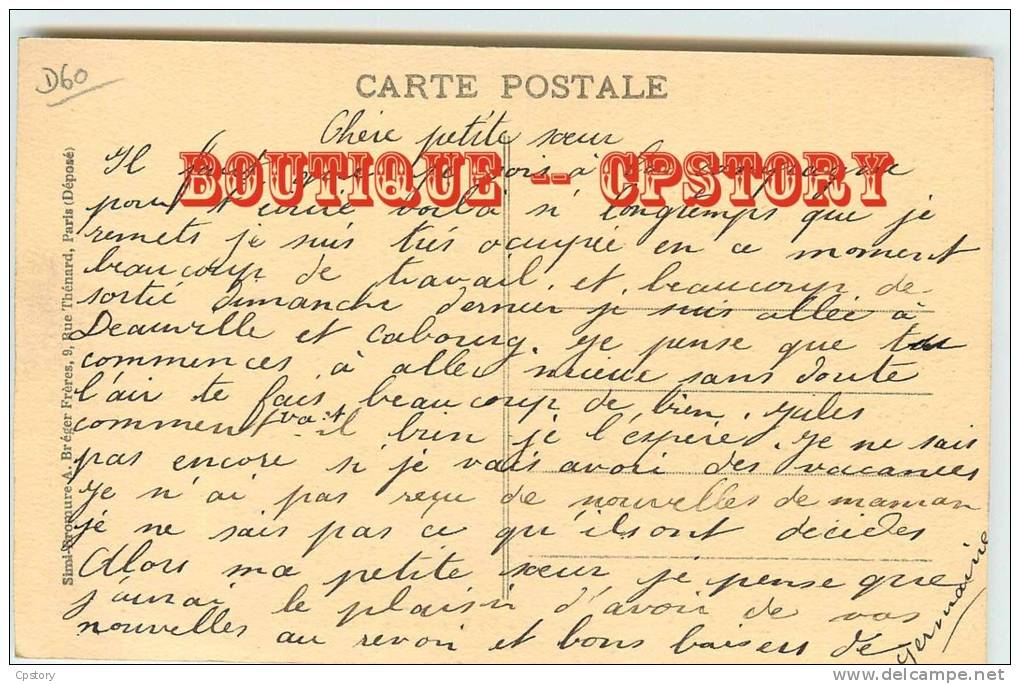 D60
CARTE POSTALE
Chère petite sœur
BOUTIQUE -- CPSTORY
Il que je à la
pour voilà si longtemps que je
remets je suis très occupée en ce moment
beaucoup de travail, et, beaucoup de
sortié dimanche dernier je suis allée à
Deauville et Cabourg. Je pense que tu
commences à aller mieux sans doute
l'air te fais beaucoup de bien. Jules
comment va-t il bien je l'espère. Je ne sais
pas encore si je vais avoir des vacances
Je n'ai pas reçu de nouvelles de maman
je ne sais pas ce qu'ils ont décidés
Alors ma petite sœur je pense que
j'aurai le plaisir d'avoir de vos
nouvelles au revoir et bons baisers de
Germaine
Simi-Bromure A. Bréger Frères, 9, Rue Thénard, Paris (Déposé)
Cpstory
delcampe.net